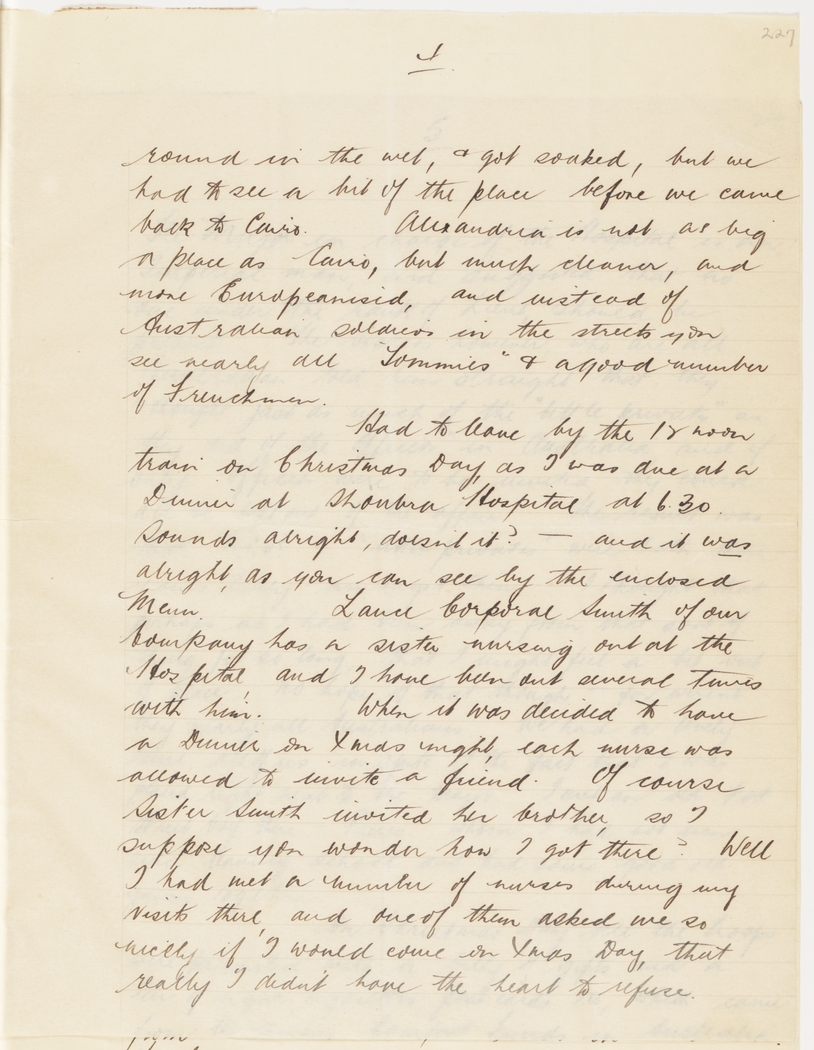 227
4
round in the wet, & got soaked, but we
had to see a bit of the place before we came
back to Cairo. Alexandria is not as big
a place as Cairo, but much cleaner, and
more Europeanised, and instead of
Australian soldiers in the streets you
see nearly all "Tommies" & a good number
of Frenchmen.
Had to leave by the 12 noon
train on Christmas Day, as I was due at a
Dinner at Shoubra Hospital at 6.30.
Sounds alright, doesn't it? — and it was
alright, as you can see by the enclosed
Menu. Lance Corporal Smith of our
Company has a sister nursing out at the
Hospital, and I have been out several times
with him. When it was decided to have
a Dinner on Xmas night, each nurse was
allowed to invite a friend. Of course
Sister Smith invited her brother, so I
suppose you wonder how I got there? Well
I had met a number of nurses during my
visits there, and one of them asked me so
nicely if I would come on Xmas Day, that
really I didn't have the heart to refuse.